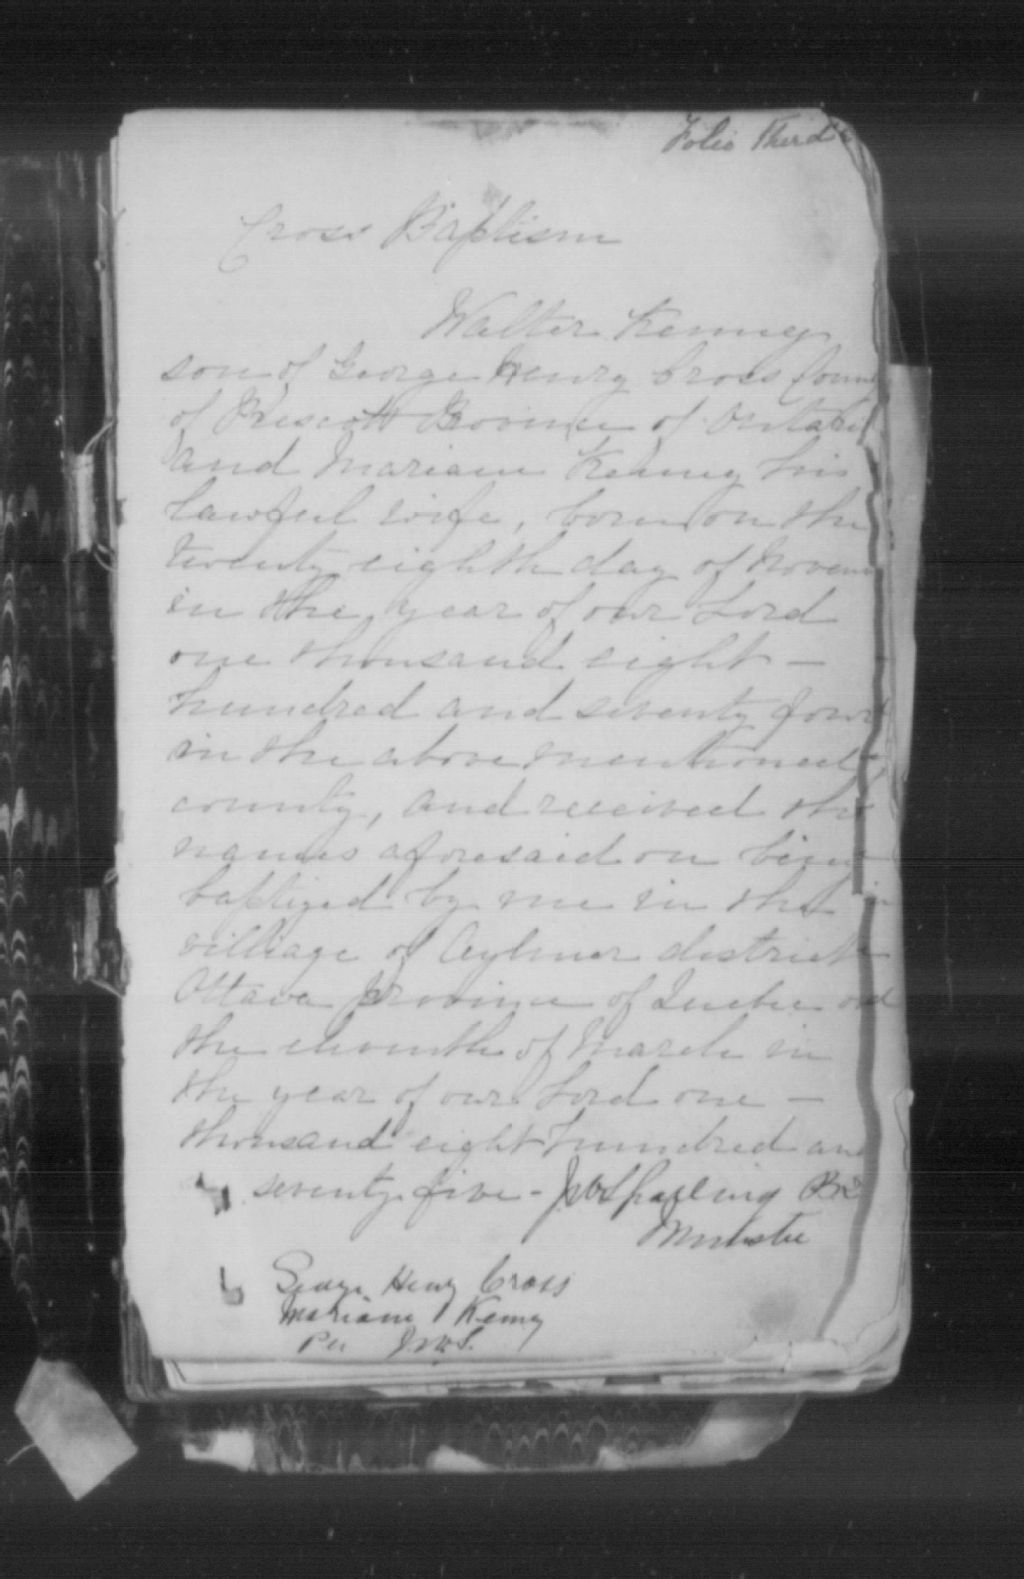 Folio Third
Cross Baptism
Walter Kenney
son of George Henry Cross
of Prescott Province of Ontario
and Mariam Kenney his
lawful wife, born on the
twenty eighth day of Novem
in the year of our Lord
one thousand eight –
hundred and seventy four
in the above mentioned
county, and received the
names aforesaid on being
baptized by me in the
villiage of Aylmer district
Ottawa Province of Quebec
the eleventh of March in
the year of our Lord one –
thousand eight hundred and
seventy five - J.W. Sparling
Minister
George Henry Cross
Mariam Kenny
Per J.W.S.